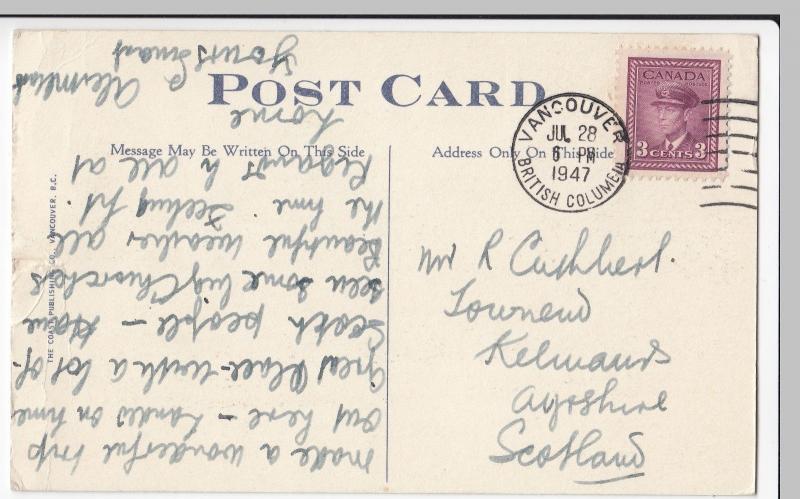 POST CARD
Message May Be Written On This Side
Address Only On This Side
CANADA
POSTES POSTAGE
3 CENTS 3
VANCOUVER
JUL 28
6 PM
1947
BRITISH COLUMBIA
THE COAST PUBLISHING CO., VANCOUVER, B.C.
made a wonderful trip
out here – Landed on time
Great Place – with a lot of
Scotch people – Have
seen some big Churches
Beautiful weather all
the time Feeling fit.
Regards to all at
home
Yours
Mr R Cuthbert.
Townend
Kilmaurs
Ayrshire
Scotland